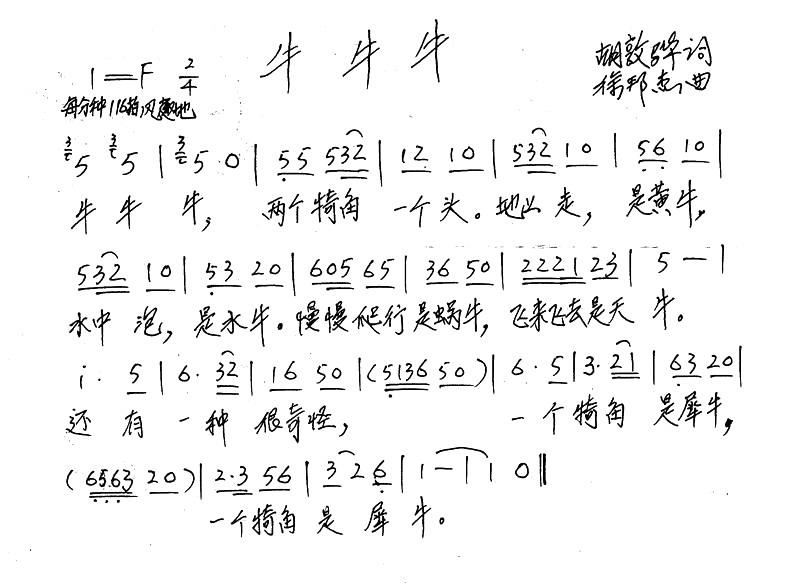 牛 牛 牛
1=F 2/4
胡敦骅 词
徐邦杰 曲
每分钟116拍 风趣地
3/2 5 3/2 5 | 3/2 5 0 | 55 532 | 12 10 | 532 10 | 56 10 |
牛 牛 牛, 两个犄角 一个头。地山 走, 是黄牛,
532 10 | 53 20 | 605 65 | 36 50 | 2221 23 | 5 — |
水中 泡, 是水牛。慢慢爬行是蜗牛, 飞来飞去是天 牛。
i· 5 | 6· 32 | 16 50 | (5136 50) | 6· 5 | 3· 21 | 63 20 |
还 有 一 种 很奇怪, 一 个 犄角 是犀牛,
(6563 20) | 2·3 56 | 3 2 6 | 1 — | 1 0 ‖
一个犄角 是 犀 牛。